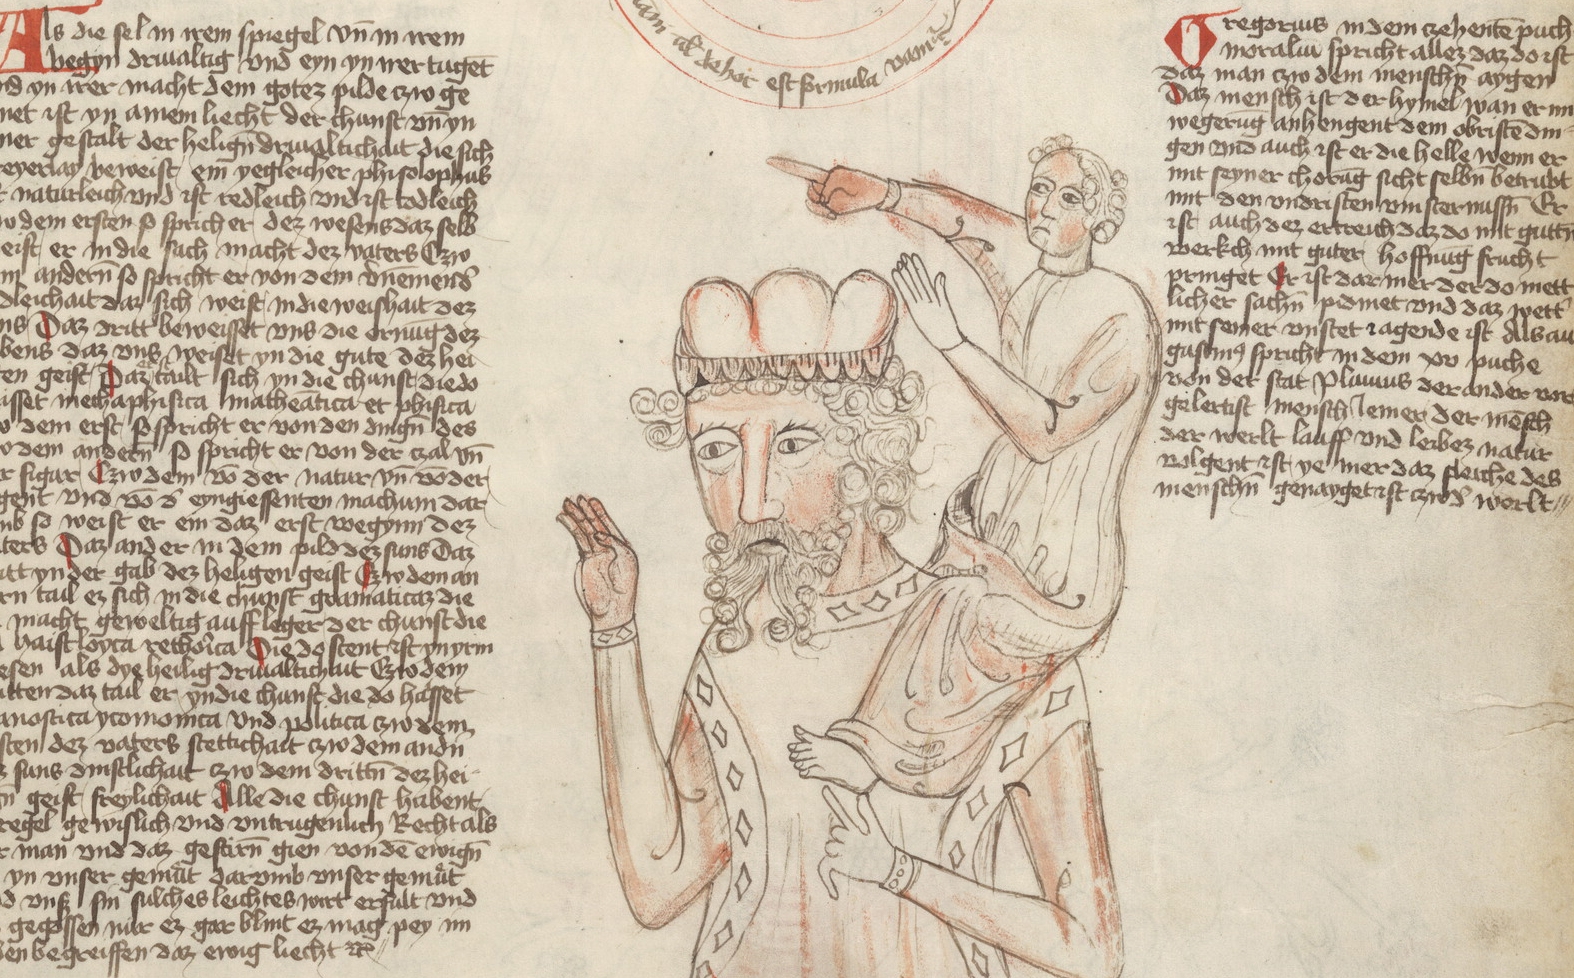 Als die sel in irem spiegel vñ in irem
begyn drivaltig vnd eyn yn irer tuget
nd yn irer macht dem gotez pilde czw ge
net ist yn ainem liecht der chunst vñ yn
ner gestalt der heligñ drivaltichait die sich
reyerlay beweist ein yegleicher philosophus
naturleich vnd ist redleich vnd ist todleich
w dem ersten so sprich er dez wesens daz selb
weist er in die sach macht dez vaters Czw
m andern so spricht er von dem
dleichait daz sich weist in die weishait dez
ns Daz dritt beweisset vns die ornūg dez
bens daz vns weiset yn die gute dez hei
ten geist Daz tailt sich yn die chunst die do
aisset methaphisica matheatica et phisica
w dem erst so spricht er von den dingñ des
w dem andern so spricht er von der czal vñ
r figur Czw dem von der natur vñ von der
gent vnd von den eyngiessenten machum dar
mb so weist er ein daz erst wegynn dez
aters Daz ander in dem pild dez suns Daz
itt yn der gab dez heligen geist Czw dem an
rn tail ez sich in die chunst gramatica die
macht geweltig auffleger der chunst die
haist loyca rethorica Die do scent ist yn yrm
esen als dye heilig drivaltichait Czw dem
ritten daz tail er yn die chunst die do haisset
anostica yconomica vnd politica czw dem
sten dez vaters stettichait czw dem andñ
z suns dinstlichait czw dem drittñ dez hei
gñ geist freylichait Alle die chunst habent
regel gewislich vnd vntrugenlich Recht als
r man vnd daz gestirñ gien von dē ewigñ
yn vnser gemüt darumb vnser gemüt
d vns sin sulches leichtes wirt erfult vnd
gegossen nür ez gar blint ez mag pey im
ben begreiffen daz ewig liecht
de hoc est formula
Gregorius in dem czehentē puch
moraliū spricht allez daz do ist
daz man czw dem menschñ aygen
Daz mensch ist der hymel wan er im
wegerūg anhengent dem obristē din
gen vnd auch ist er die helle wenn er
mit seyner chorūg sicht selbñ betrubt
mit den vndristen vinsternissñ Er
ist auch dez ertreich daz do mit gutñ
werkch mit guter hoffnūg frucht
pringet Er ist dar mer der do mett
licher sachñ pidmet vnd daz wett
mit seiner vnstet iagende ist Als au
gustinus spricht in dem xv puche
von der stat Plauius der ander wor
gelertist mensch iemer der mēsch
der werlt lauff vnd leibez natur
volgent ist ye mer daz fleiche des
menschñ genayget ist czw der werlt